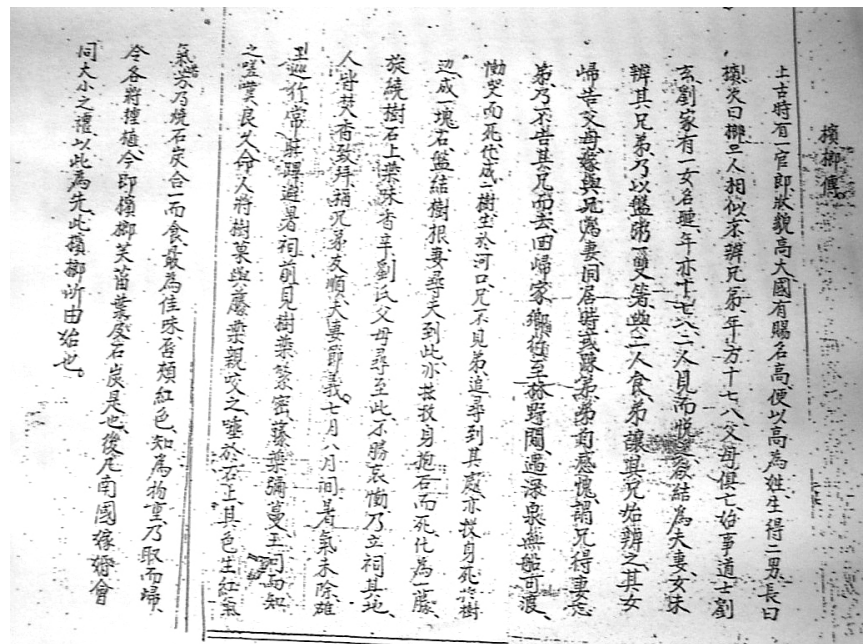 檳榔傳
上古時有一官郎狀貌高大國有賜名高便以高為姓生得二男長曰
檳次曰榔二人相似不辨兄弟年方十七八父母俱亡始事道士劉
玄劉家有一女名璉年亦十七八二人見而悅之欲結為夫妻女未
辨其兄弟乃以盤粥一雙箸與二人食弟讓其兄始辨之其女
歸告父母嫁與兄為妻同居時或踈弟弟自感愧謂兄得妻忘
弟乃不告其兄而去回歸家鄉行至林野間遇深泉無船可渡
慟哭而死化成一樹生於河口兄不見弟追尋到其處亦投身死於樹
边成一塊石盤結樹根妻尋夫到此亦投身抱石而死化為一藤
旋繞樹石上葉味香辛劉氏父母尋至此不勝哀慟乃立祠其地
人皆焚香致拜稱兄弟友順夫妻節義七月八月間暑氣未除雄
王巡行常駐蹕避暑祠前見樹葉繁密藤葉彌蔓王問而知
之嗟嘆良久命人將樹菓與藤葉親咬之唾於石上其色生紅氣
氣芳乃燒石灰合一而食最為佳味唇頰紅色知為物重乃取而歸
令各將種植今即檳榔芙䓤葉及石灰是也後凡南國嫁娶會
同大小之禮以此為先此檳榔所由始也